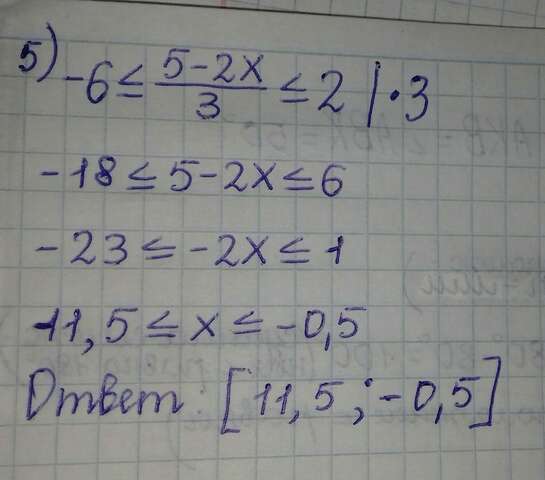 5) -6 ≤ (5-2x)/3 ≤ 2 | · 3
-18 ≤ 5-2x ≤ 6
-23 ≤ -2x ≤ 1
11,5 ≤ x ≤ -0,5
Ответ [11,5 ; -0,5]